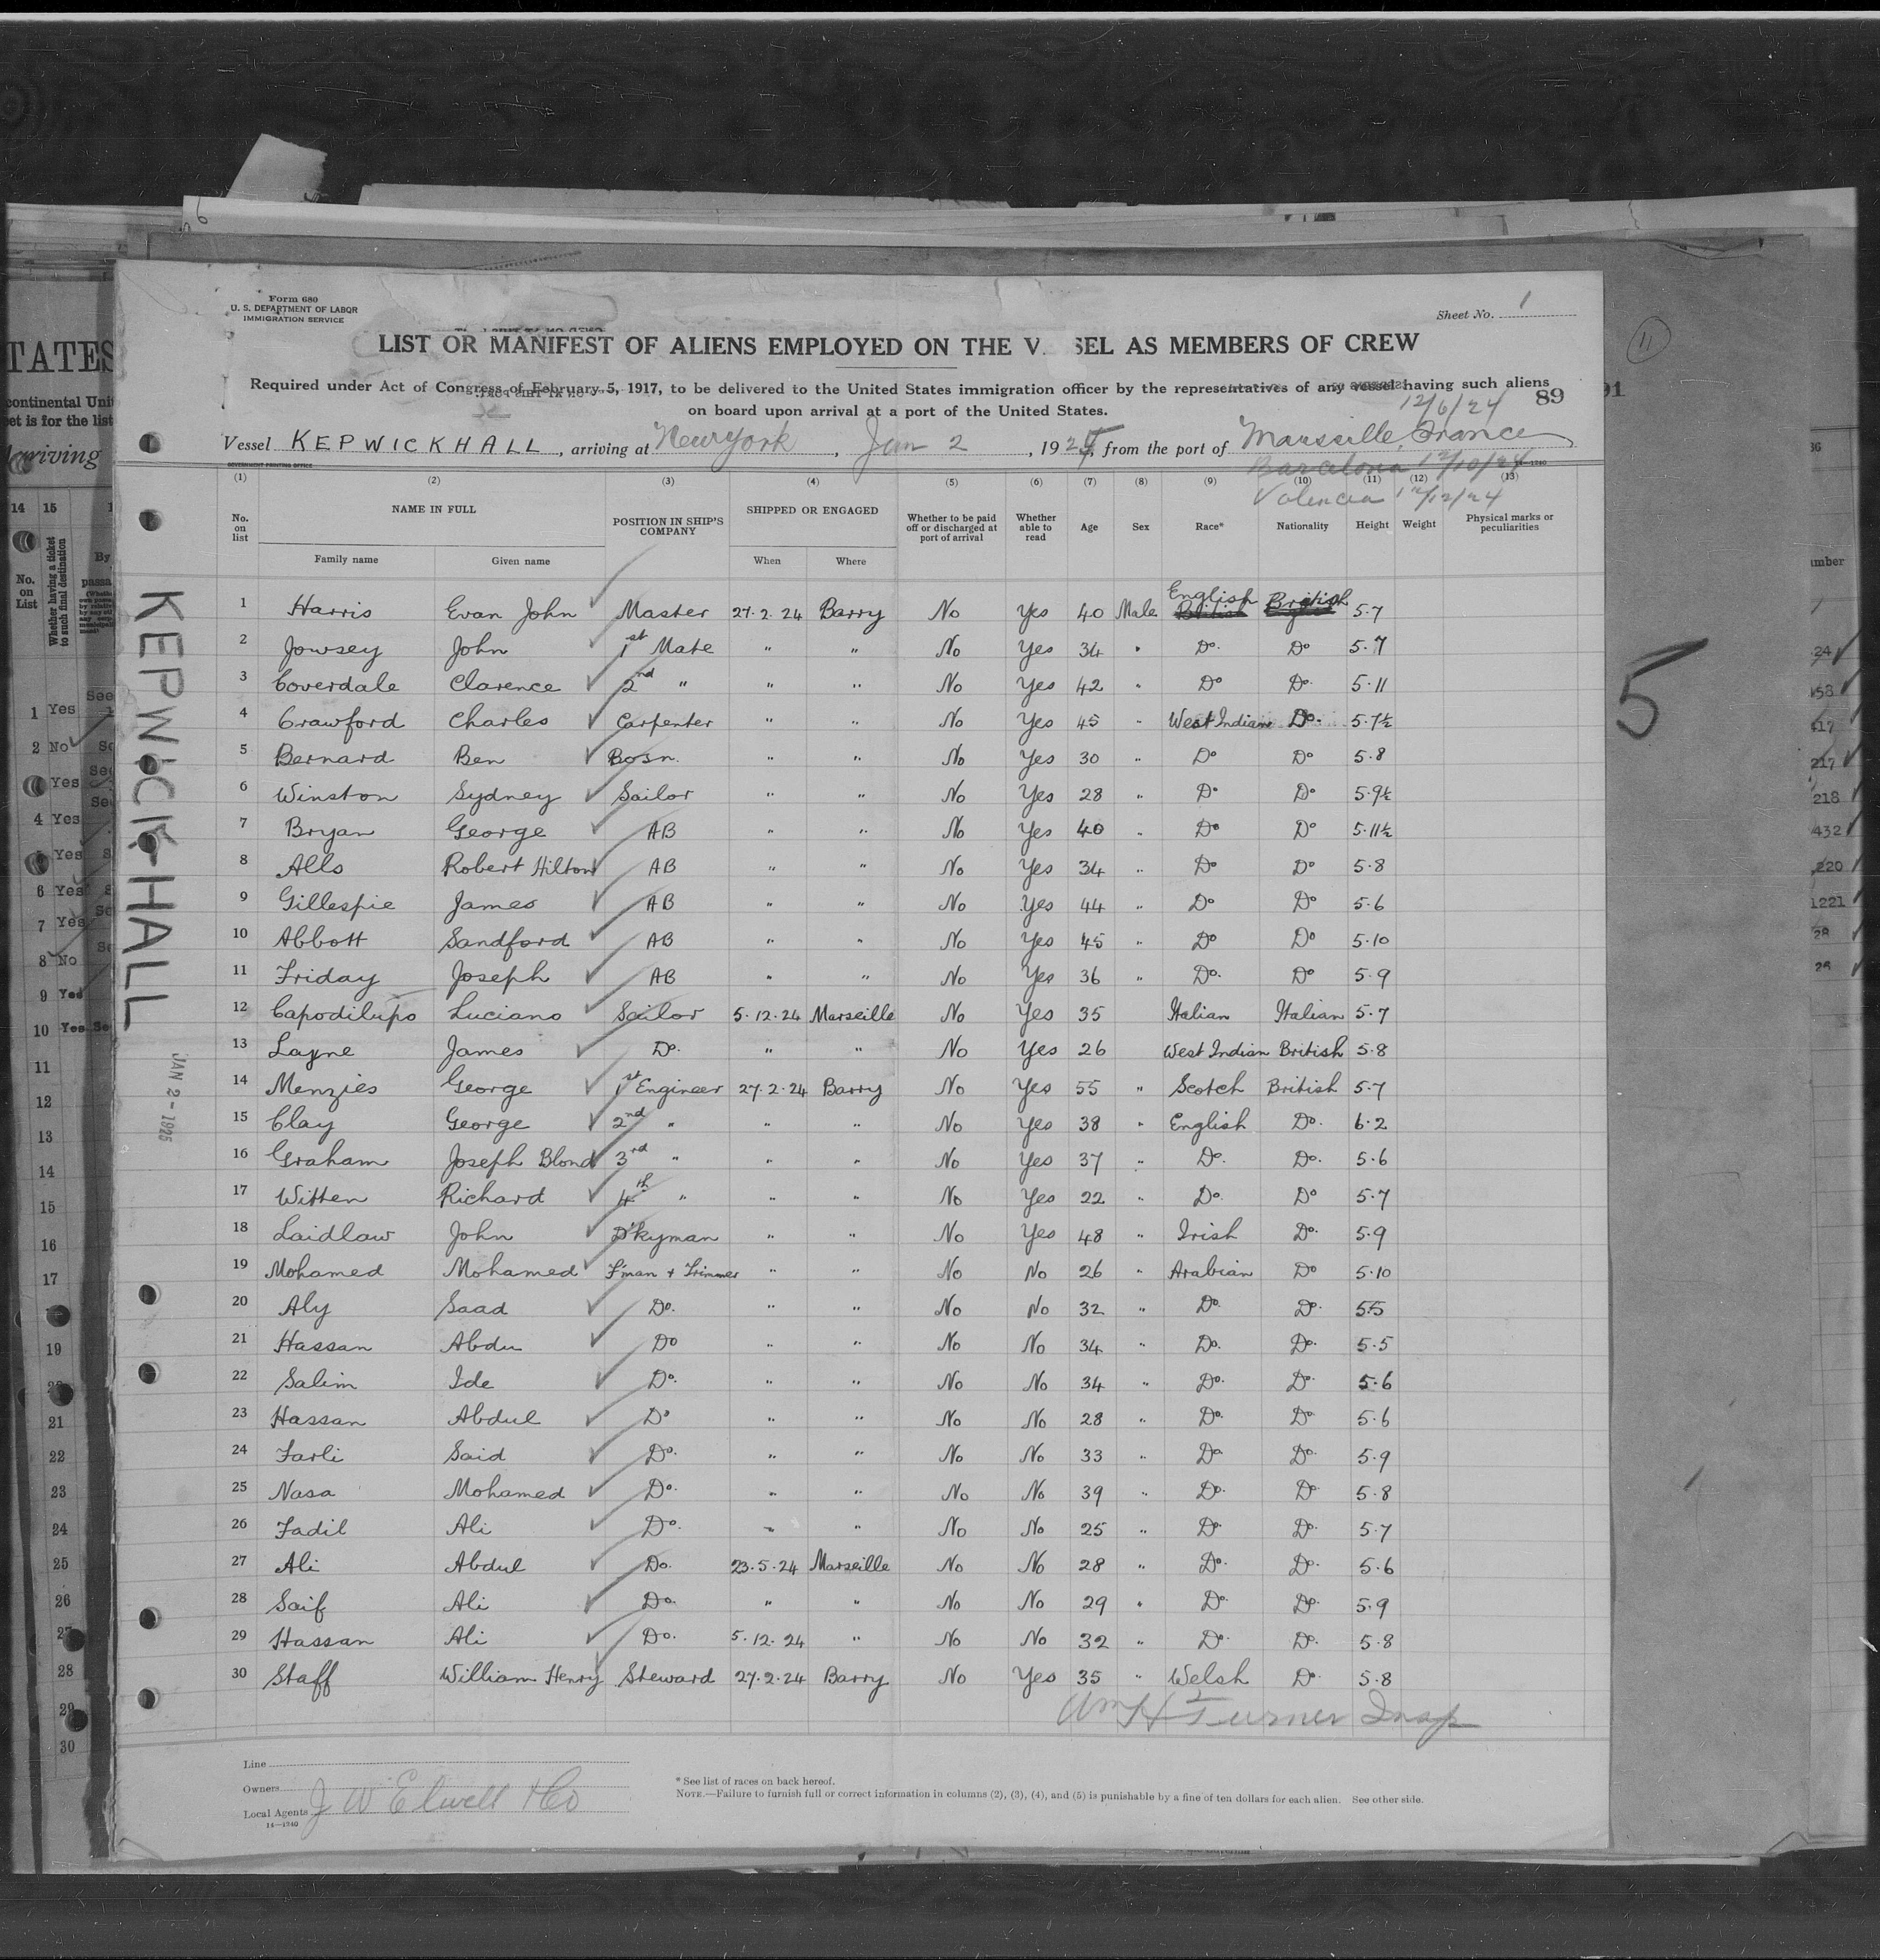 Form 680
U. S. DEPARTMENT OF LABOR
IMMIGRATION SERVICE
Sheet No. 1
LIST OR MANIFEST OF ALIENS EMPLOYED ON THE V SEL AS MEMBERS OF CREW
Required under Act of Congress of February 5, 1917, to be delivered to the United States immigration officer by the representatives of any vessel having such aliens
on board upon arrival at a port of the United States.
12/6/24 89
Vessel KEPWICKHALL, arriving at New York, Jan 2, 1925, from the port of Marseille, France
Barcelona 12/10/24
Valencia 12/12/24
GOVERNMENT PRINTING OFFICE 14—1240
(1) (2) (3) (4) (5) (6) (7) (8) (9) (10) (11) (12) (13)
No. on list NAME IN FULL POSITION IN SHIP'S COMPANY SHIPPED OR ENGAGED Whether to be paid off or discharged at port of arrival Whether able to read Age Sex Race* Nationality Height Weight Physical marks or peculiarities
Family name Given name When Where
1 Harris Evan John Master 27.2.24 Barry No Yes 40 Male English British 5.7
2 Jowsey John 1st Mate " " No Yes 34 " Do. Do 5.7
3 Coverdale Clarence 2nd " " " No Yes 42 " Do Do. 5.11
4 Crawford Charles Carpenter " " No Yes 45 " West Indian Do. 5.7½
5 Bernard Ben Bosn. " " No Yes 30 " Do Do 5.8
6 Winston Sydney Sailor " " No Yes 28 " Do Do 5.9½
7 Bryan George AB " " No Yes 40 " Do Do 5.11½
8 Alls Robert Hilton AB " " No Yes 34 " Do Do 5.8
9 Gillespie James AB " " No Yes 44 " Do Do 5.6
10 Abbott Sandford AB " " No Yes 45 " Do Do 5.10
11 Friday Joseph AB " " No Yes 36 " Do. Do 5.9
12 Capodilupo Luciano Sailor 5.12.24 Marseille No Yes 35 Italian Italian 5.7
13 Layne James Do. " " No Yes 26 West Indian British 5.8
14 Menzies George 1st Engineer 27.2.24 Barry No Yes 55 " Scotch British 5.7
15 Clay George 2nd " " " No Yes 38 " English Do. 6.2
16 Graham Joseph Blond 3rd " " " No Yes 37 " Do. Do. 5.6
17 Witten Richard 4th " " " No Yes 22 " Do. Do 5.7
18 Laidlaw John D'kyman " " No Yes 48 " Irish Do. 5.9
19 Mohamed Mohamed F'man + Trimmer " " No No 26 " Arabian Do 5.10
20 Aly Saad Do. " " No No 32 " Do. Do. 5.5
21 Hassan Abdu Do " " No No 34 " Do. Do. 5.5
22 Salim Ide Do. " " No No 34 " Do. Do. 5.6
23 Hassan Abdul Do " " No No 28 " Do. Do. 5.6
24 Farli Said Do. " " No No 33 " Do Do. 5.9
25 Nasa Mohamed Do. " " No No 39 " Do. Do. 5.8
26 Fadil Ali Do. " " No No 25 " Do. Do. 5.7
27 Ali Abdul Do. 23.5.24 Marseille No No 28 " Do. Do. 5.6
28 Saif Ali Do. " " No No 29 " Do. Do. 5.9
29 Hassan Ali Do. 5.12.24 " No No 32 " Do. Do. 5.8
30 Staff William Henry Steward 27.2.24 Barry No Yes 35 " Welsh Do. 5.8
Wm H Turner Insp
Line
Owners
Local Agents J W Elwell & Co
14—1240
* See list of races on back hereof.
NOTE.—Failure to furnish full or correct information in columns (2), (3), (4), and (5) is punishable by a fine of ten dollars for each alien. See other side.
KEPWICKHALL
JAN 2 - 1925
5
11
91
TATES
continental Unit
eet is for the list
Arriving
14 15
No. on List
Whether having a ticket to such final destination
1 Yes See
2 No
Yes See
4 Yes
Yes
6 Yes
7 Yes
8 No
9 Yes
10 Yes
11
12
13
14
15
16
17
19
21
22
23
24
25
26
27
28
29
30
24
217
218
432
220
1221
28
26